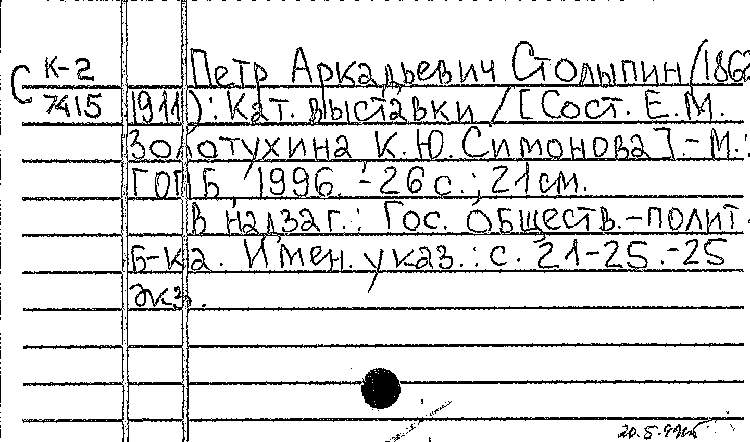 С К-2
7415
Петр Аркадьевич Столыпин (1862
1911): Кат. выставки / [Сост. Е.М.
Золотухина, К.Ю. Симонова]. - М.:
ГОПБ, 1996. - 26 с.; 21 см.
В надзаг.: Гос. обществ.-полит.
б-ка. Имен. указ.: с. 21-25. - 25
экз.